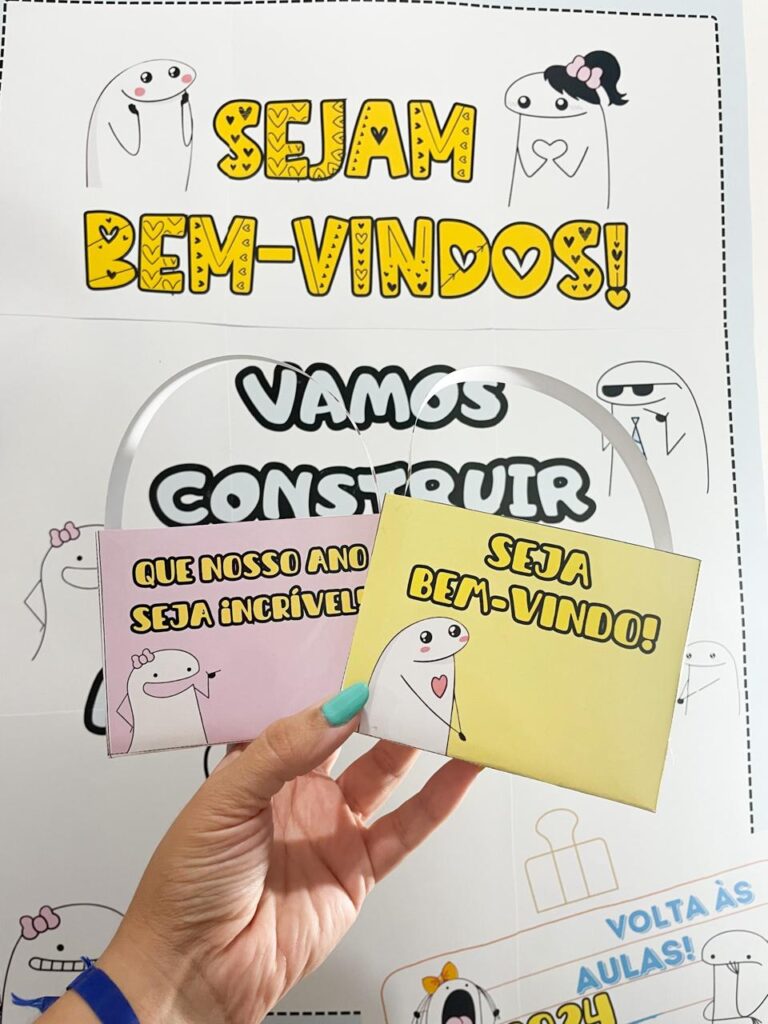 SEJAM
BEM-VINDOS!
VAMOS
CONSTRUIR
QUE NOSSO ANO
SEJA INCRÍVEL!
SEJA
BEM-VINDO!
VOLTA ÀS
AULAS!
2024